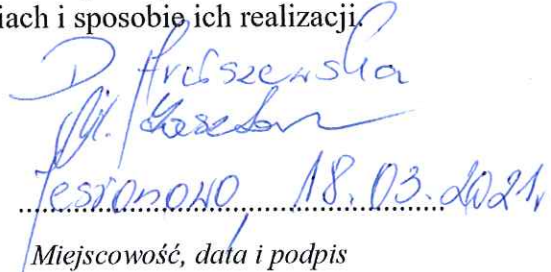 iach i sposobie ich realizacji.
D
Jesionowo, 18.03.2021r
Miejscowość, data i podpis